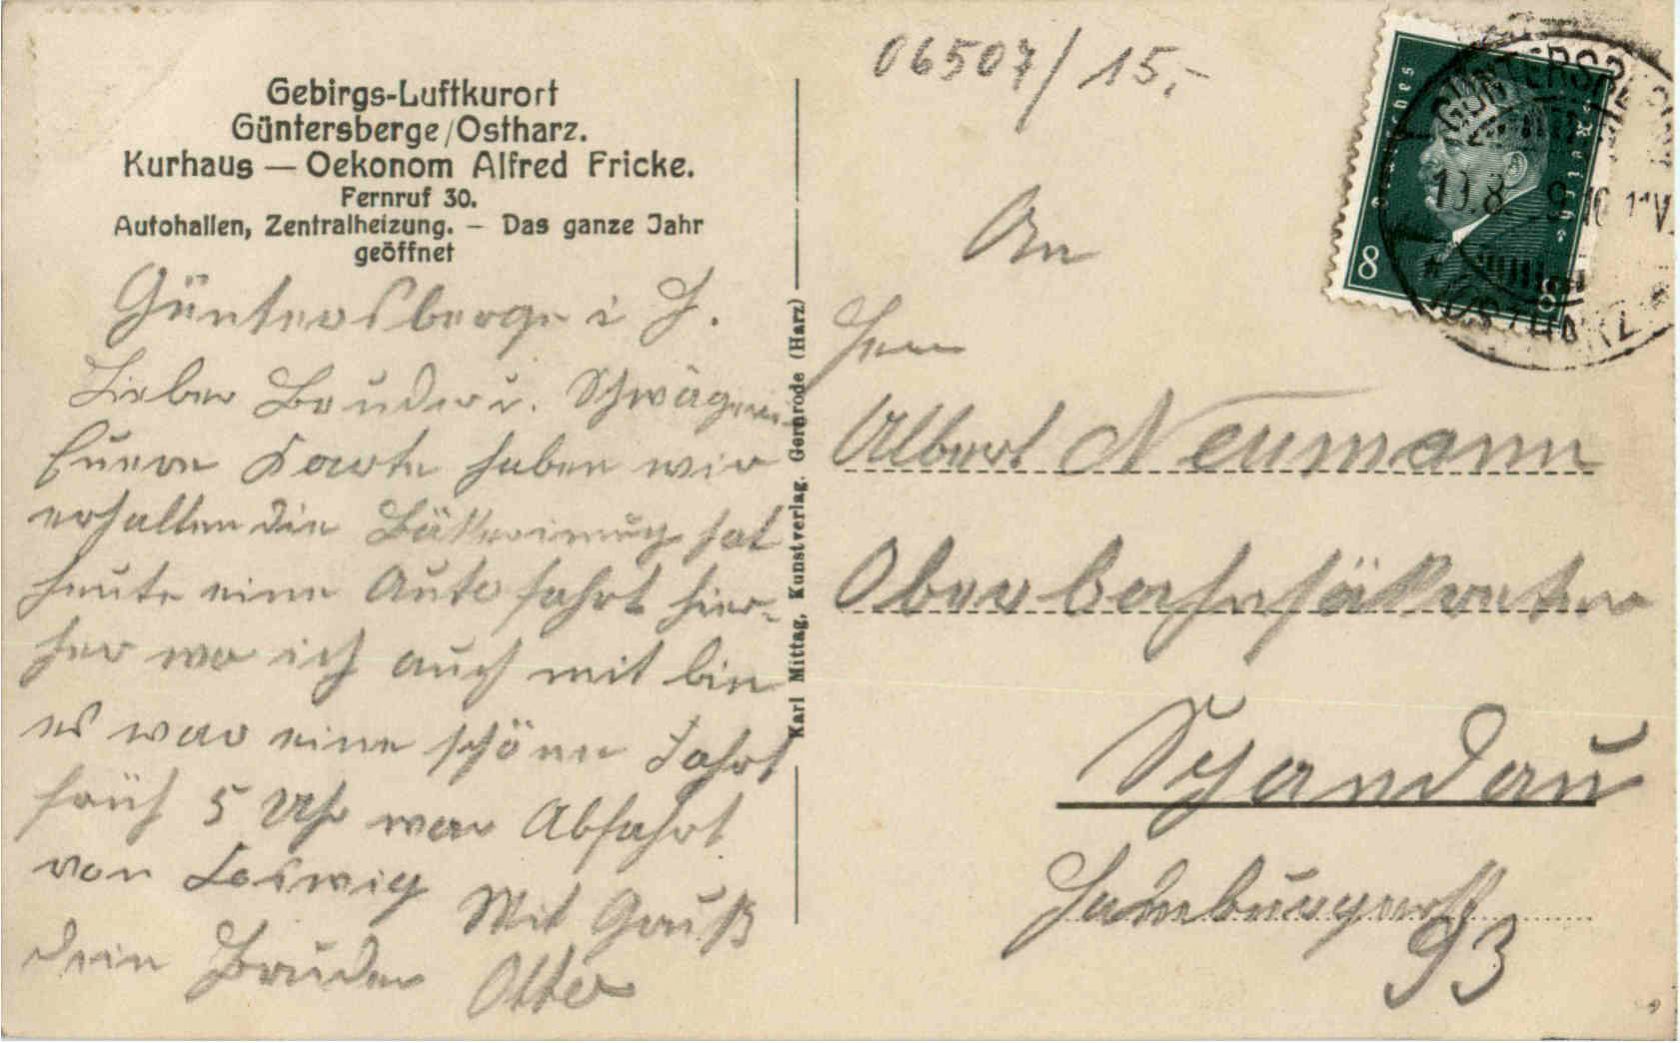 Gebirgs-Luftkurort
Güntersberge/Ostharz.
Kurhaus — Oekonom Alfred Fricke.
Fernruf 30.
Autohallen, Zentralheizung. — Das ganze Jahr
geöffnet
Güntersberge i H.
Lieber Bruder u. Schwägerin
Euere Karte haben wir
erhalten die Bäkerinnung hat
heute eine Auto fahrt hier-
her wo ich auch mit bin
es war eine schöne Fahrt
früh 5 Uhr war Abfahrt
von Coswig Mit Gruß
dein Bruder Otto
Karl Mittag, Kunstverlag, Gernrode (Harz)
06507/15,-
Deutsches Reich
8 8
GÜNTERSBERGE
(OSTHARZ)
An
Herrn
Albert Neumann
Oberbahnsäkretär
Schandau
93